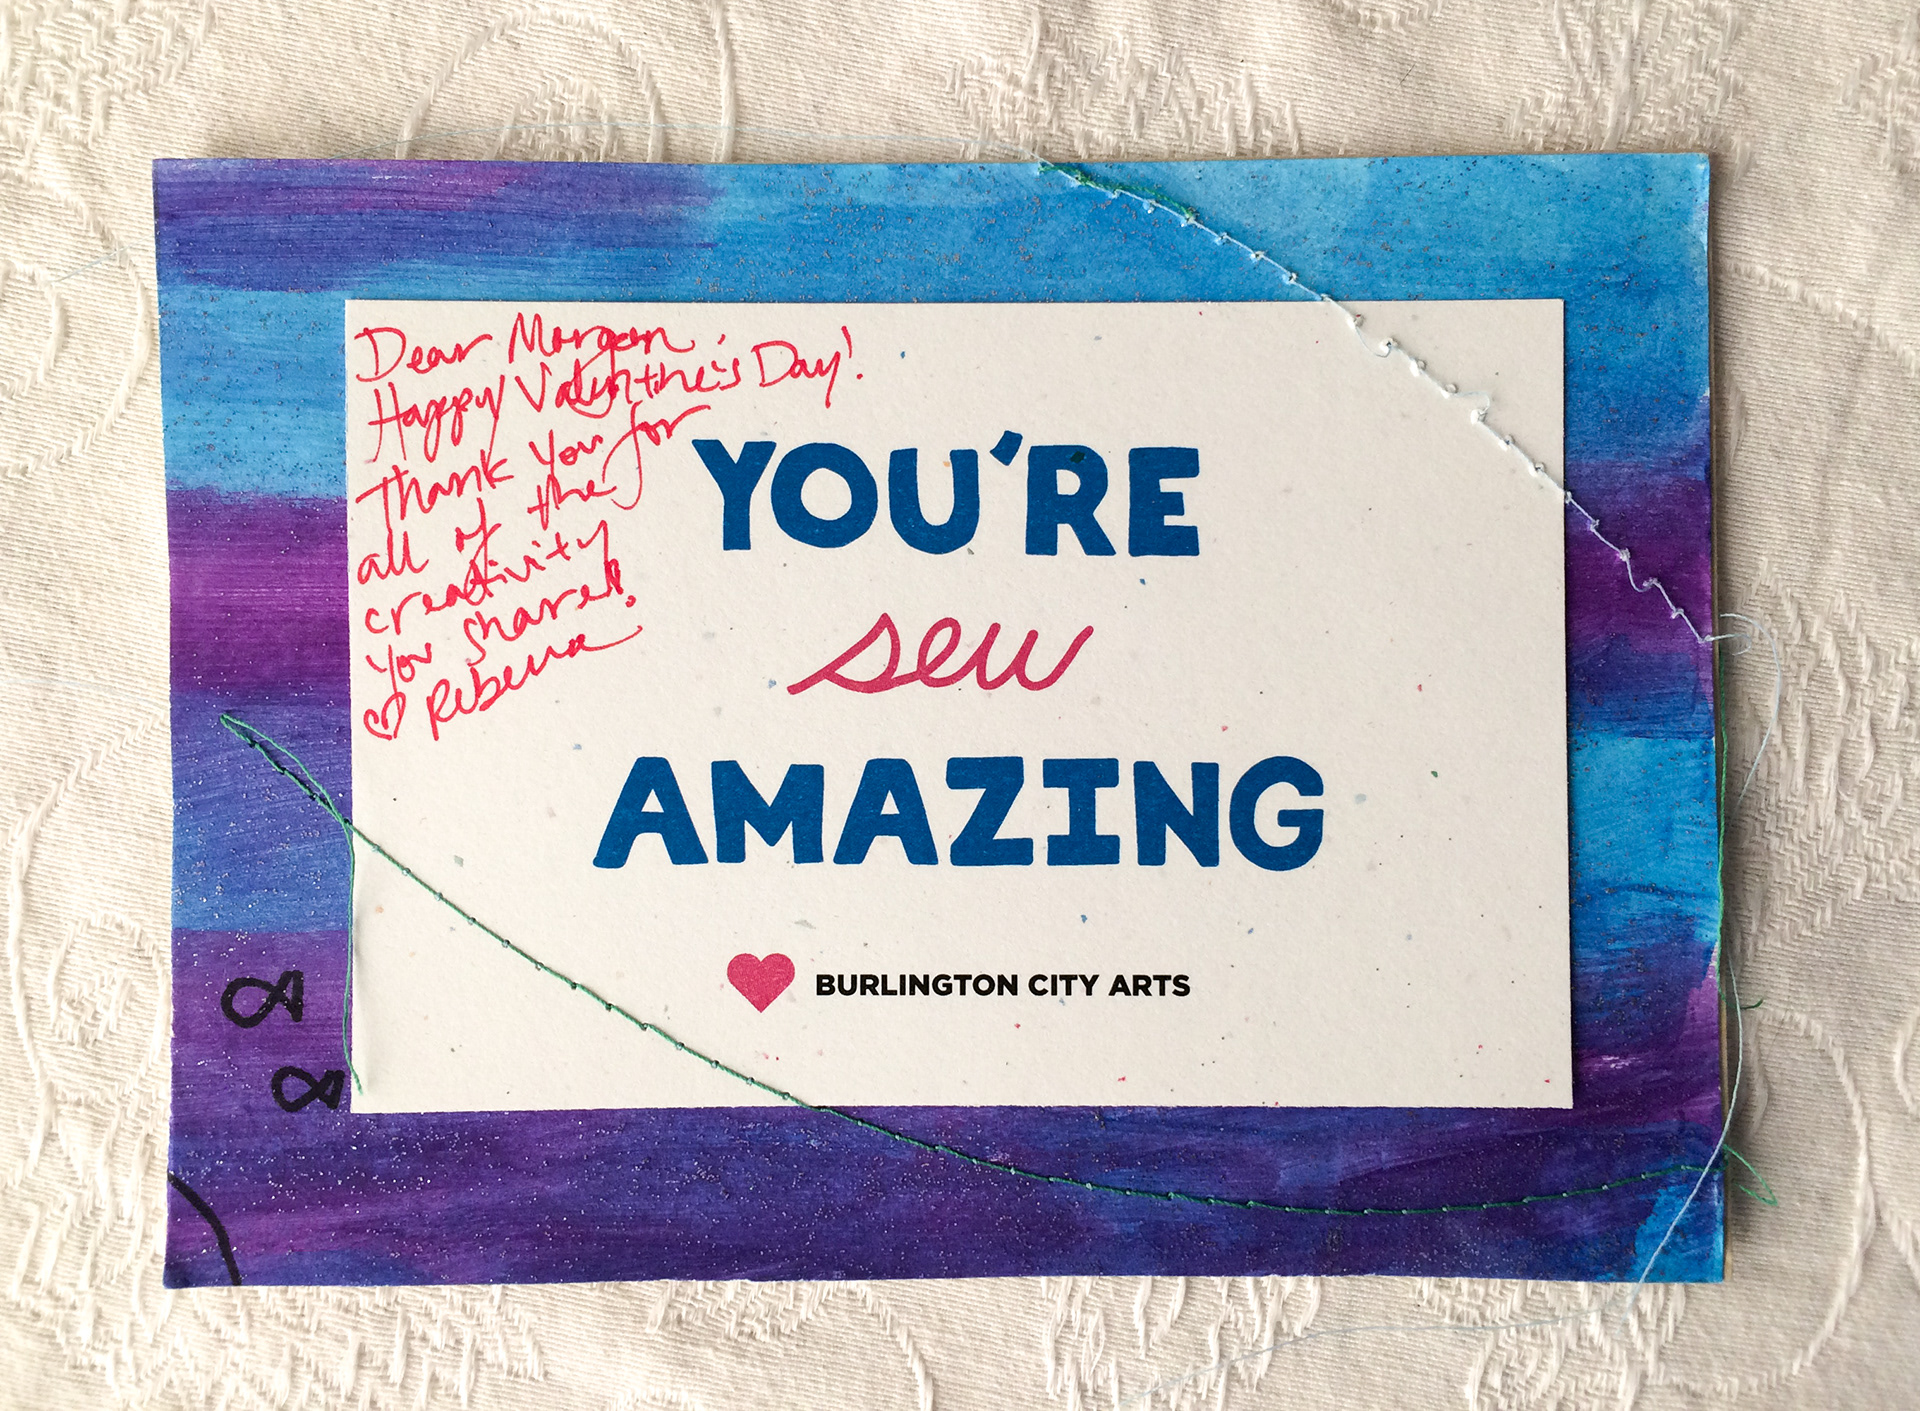 Dear Morgan
Happy Valentine's Day!
Thank you for
all of the
creativity
you share!
♡ Rebecca
YOU'RE
sew
AMAZING
BURLINGTON CITY ARTS